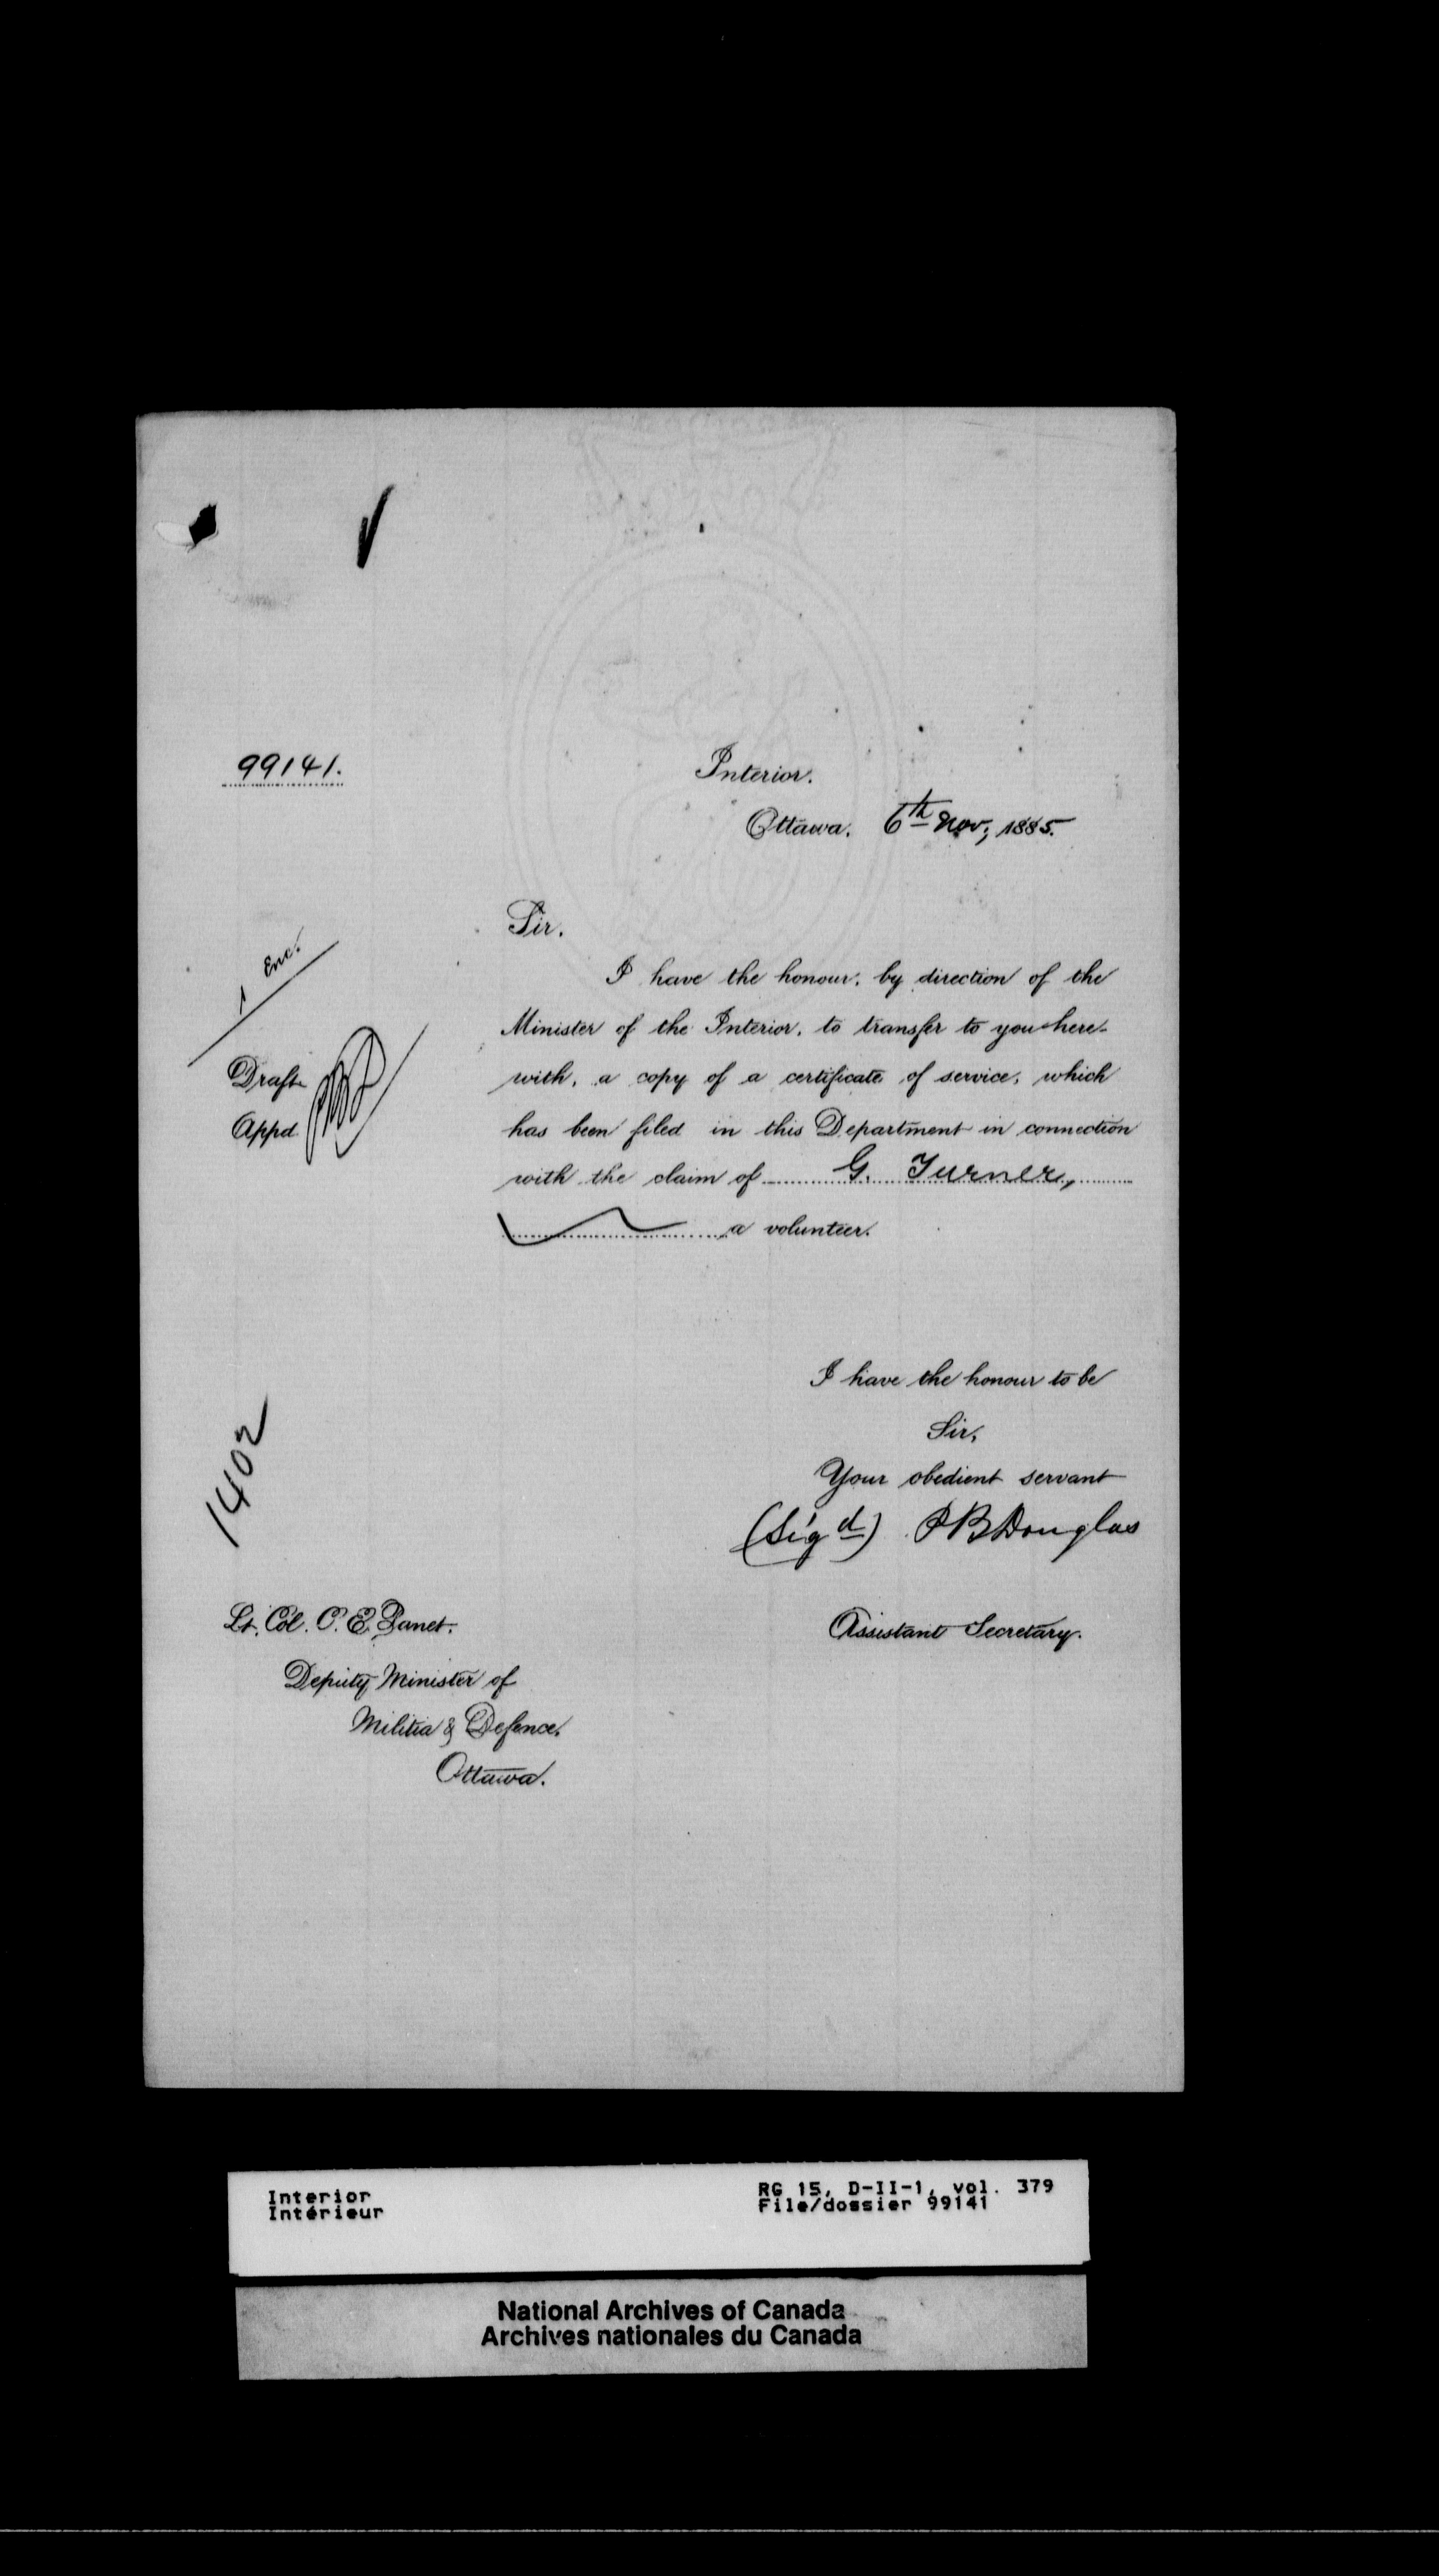 99141.
Interior.
Ottawa. 6th Nov; 1885.
Sir.
1 Enc.
I have the honour, by direction of the
Minister of the Interior, to transfer to you here-
with, a copy of a certificate of service, which
has been filed in this Department in connection
with the claim of G. Turner,
a volunteer.
Draft
Appd.
I have the honour to be
Sir,
Your obedient servant
(Sigd) P B Douglas
Assistant Secretary.
1402
Lt. Col. C. E. Panet.
Deputy Minister of
Militia & Defence.
Ottawa.
Interior
Intérieur
RG 15, D-II-1, vol. 379
File/dossier 99141
National Archives of Canada
Archives nationales du Canada